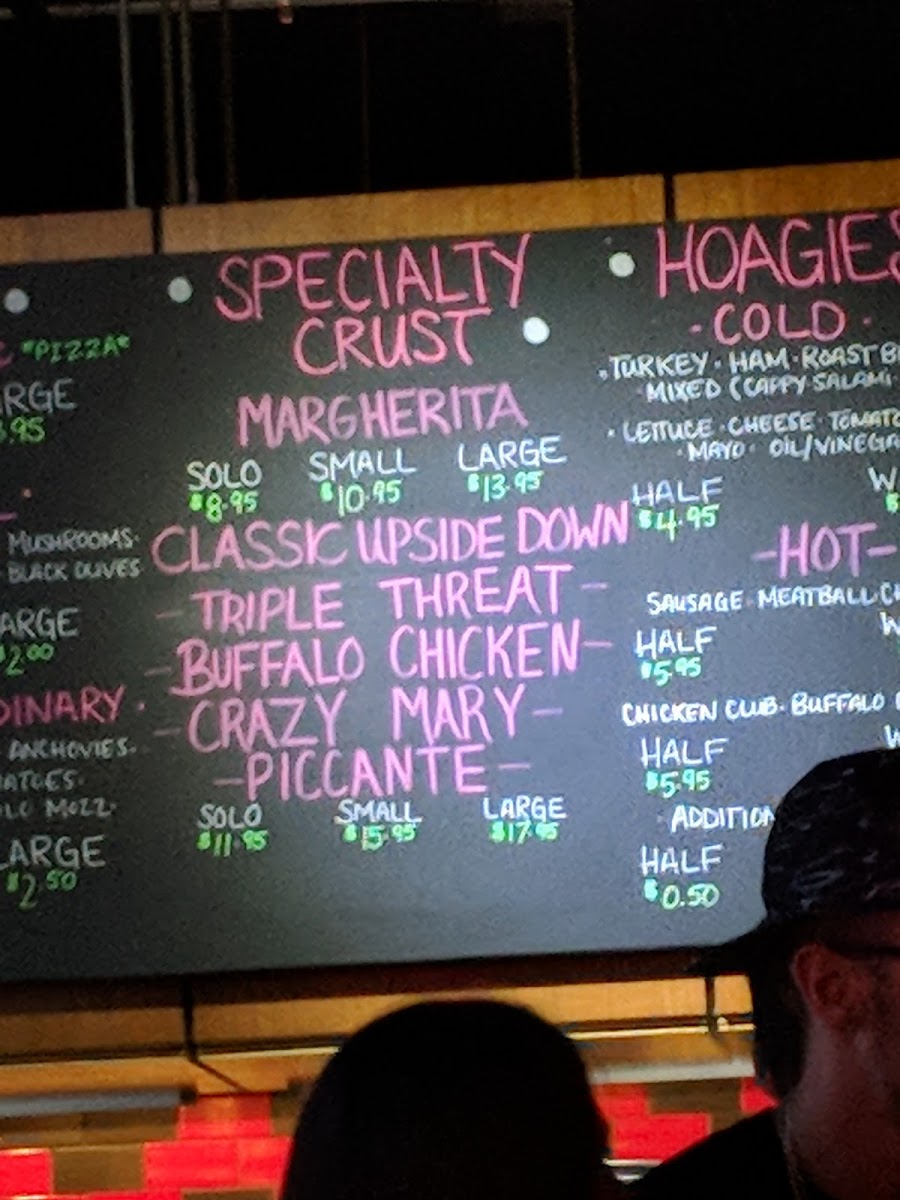 *PIZZA*
MUSHROOMS·
BLACK OLIVES
ANCHOVIES·
LARGE
$2.50
SPECIALTY
CRUST
MARGHERITA
SOLO SMALL LARGE
$8.95 $10.95 $13.95
CLASSIC UPSIDE DOWN
-TRIPLE THREAT-
-BUFFALO CHICKEN-
-CRAZY MARY-
-PICCANTE-
SOLO SMALL LARGE
$11.95 $15.95 $17.95
HOAGIES
·COLD·
·TURKEY·HAM·ROAST
MIXED (CAPPY SALAMI·
·LETTUCE·CHEESE·TOMATO
·MAYO· OIL/VINEGA
HALF
$4.95
-HOT-
SAUSAGE·MEATBALL
HALF
$5.95
CHICKEN CLUB·BUFFALO
HALF
$5.95
ADDITION
HALF
$0.50